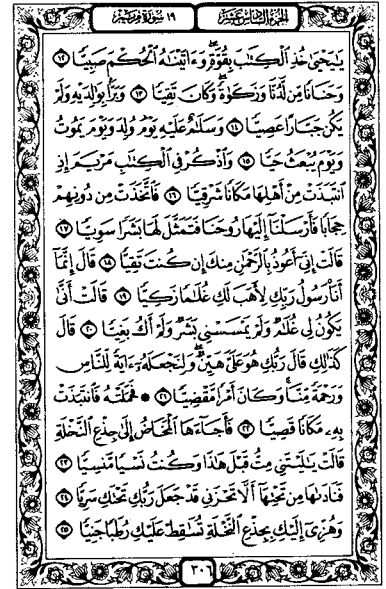 الجزء السادس عشر
١٩ سورة مريم
يَٰيَحْيَىٰ خُذِ ٱلْكِتَٰبَ بِقُوَّةٍ وَءَاتَيْنَٰهُ ٱلْحُكْمَ صَبِيًّا ١٢
وَحَنَانًا مِّن لَّدُنَّا وَزَكَوٰةً وَكَانَ تَقِيًّا ١٣ وَبَرًّۢا بِوَٰلِدَيْهِ وَلَمْ
يَكُن جَبَّارًا عَصِيًّا ١٤ وَسَلَٰمٌ عَلَيْهِ يَوْمَ وُلِدَ وَيَوْمَ يَمُوتُ
وَيَوْمَ يُبْعَثُ حَيًّا ١٥ وَٱذْكُرْ فِى ٱلْكِتَٰبِ مَرْيَمَ إِذِ
ٱنتَبَذَتْ مِنْ أَهْلِهَا مَكَانًا شَرْقِيًّا ١٦ فَٱتَّخَذَتْ مِن دُونِهِمْ
حِجَابًا فَأَرْسَلْنَآ إِلَيْهَا رُوحَنَا فَتَمَثَّلَ لَهَا بَشَرًا سَوِيًّا ١٧
قَالَتْ إِنِّىٓ أَعُوذُ بِٱلرَّحْمَٰنِ مِنكَ إِن كُنتَ تَقِيًّا ١٨ قَالَ إِنَّمَآ
أَنَا۠ رَسُولُ رَبِّكِ لِأَهَبَ لَكِ غُلَٰمًا زَكِيًّا ١٩ قَالَتْ أَنَّىٰ
يَكُونُ لِى غُلَٰمٌ وَلَمْ يَمْسَسْنِى بَشَرٌ وَلَمْ أَكُ بَغِيًّا ٢٠ قَالَ
كَذَٰلِكِ قَالَ رَبُّكِ هُوَ عَلَىَّ هَيِّنٌ وَلِنَجْعَلَهُۥٓ ءَايَةً لِّلنَّاسِ
وَرَحْمَةً مِّنَّا وَكَانَ أَمْرًا مَّقْضِيًّا ٢١ * فَحَمَلَتْهُ فَٱنتَبَذَتْ
بِهِۦ مَكَانًا قَصِيًّا ٢٢ فَأَجَآءَهَا ٱلْمَخَاضُ إِلَىٰ جِذْعِ ٱلنَّخْلَةِ
قَالَتْ يَٰلَيْتَنِى مِتُّ قَبْلَ هَٰذَا وَكُنتُ نَسْيًا مَّنسِيًّا ٢٣
فَنَادَىٰهَا مِن تَحْتِهَآ أَلَّا تَحْزَنِى قَدْ جَعَلَ رَبُّكِ تَحْتَكِ سَرِيًّا ٢٤
وَهُزِّىٓ إِلَيْكِ بِجِذْعِ ٱلنَّخْلَةِ تُسَٰقِطْ عَلَيْكِ رُطَبًا جَنِيًّا ٢٥
٣٠٦